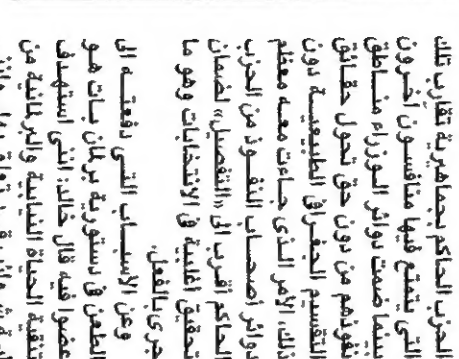 الحزب الحاكم بجماهيرية تقارب تلك
التي يتمتع فيها منافسون آخرون
بينما ضمت دوائر الوزراء مناطق
نفوذهم من دون حق تحول حقائق
التقسيم الجغرافي الطبيعية دون
ذلك، الأمر الذي جاءت معه معظم
دوائر أصحاب النفوذ من الحزب
الحاكم أقرب الى «التفصيل» لضمان
تحقيق أغلبية في الانتخابات وهو ما
جرى بالفعل.
وعن الأسباب التي دفعته الى
الطعن في دستورية برلمان بات هو
عضوا فيه قال خالد: انني استهدف
تنقية الحياة النيابية والبرلمانية من